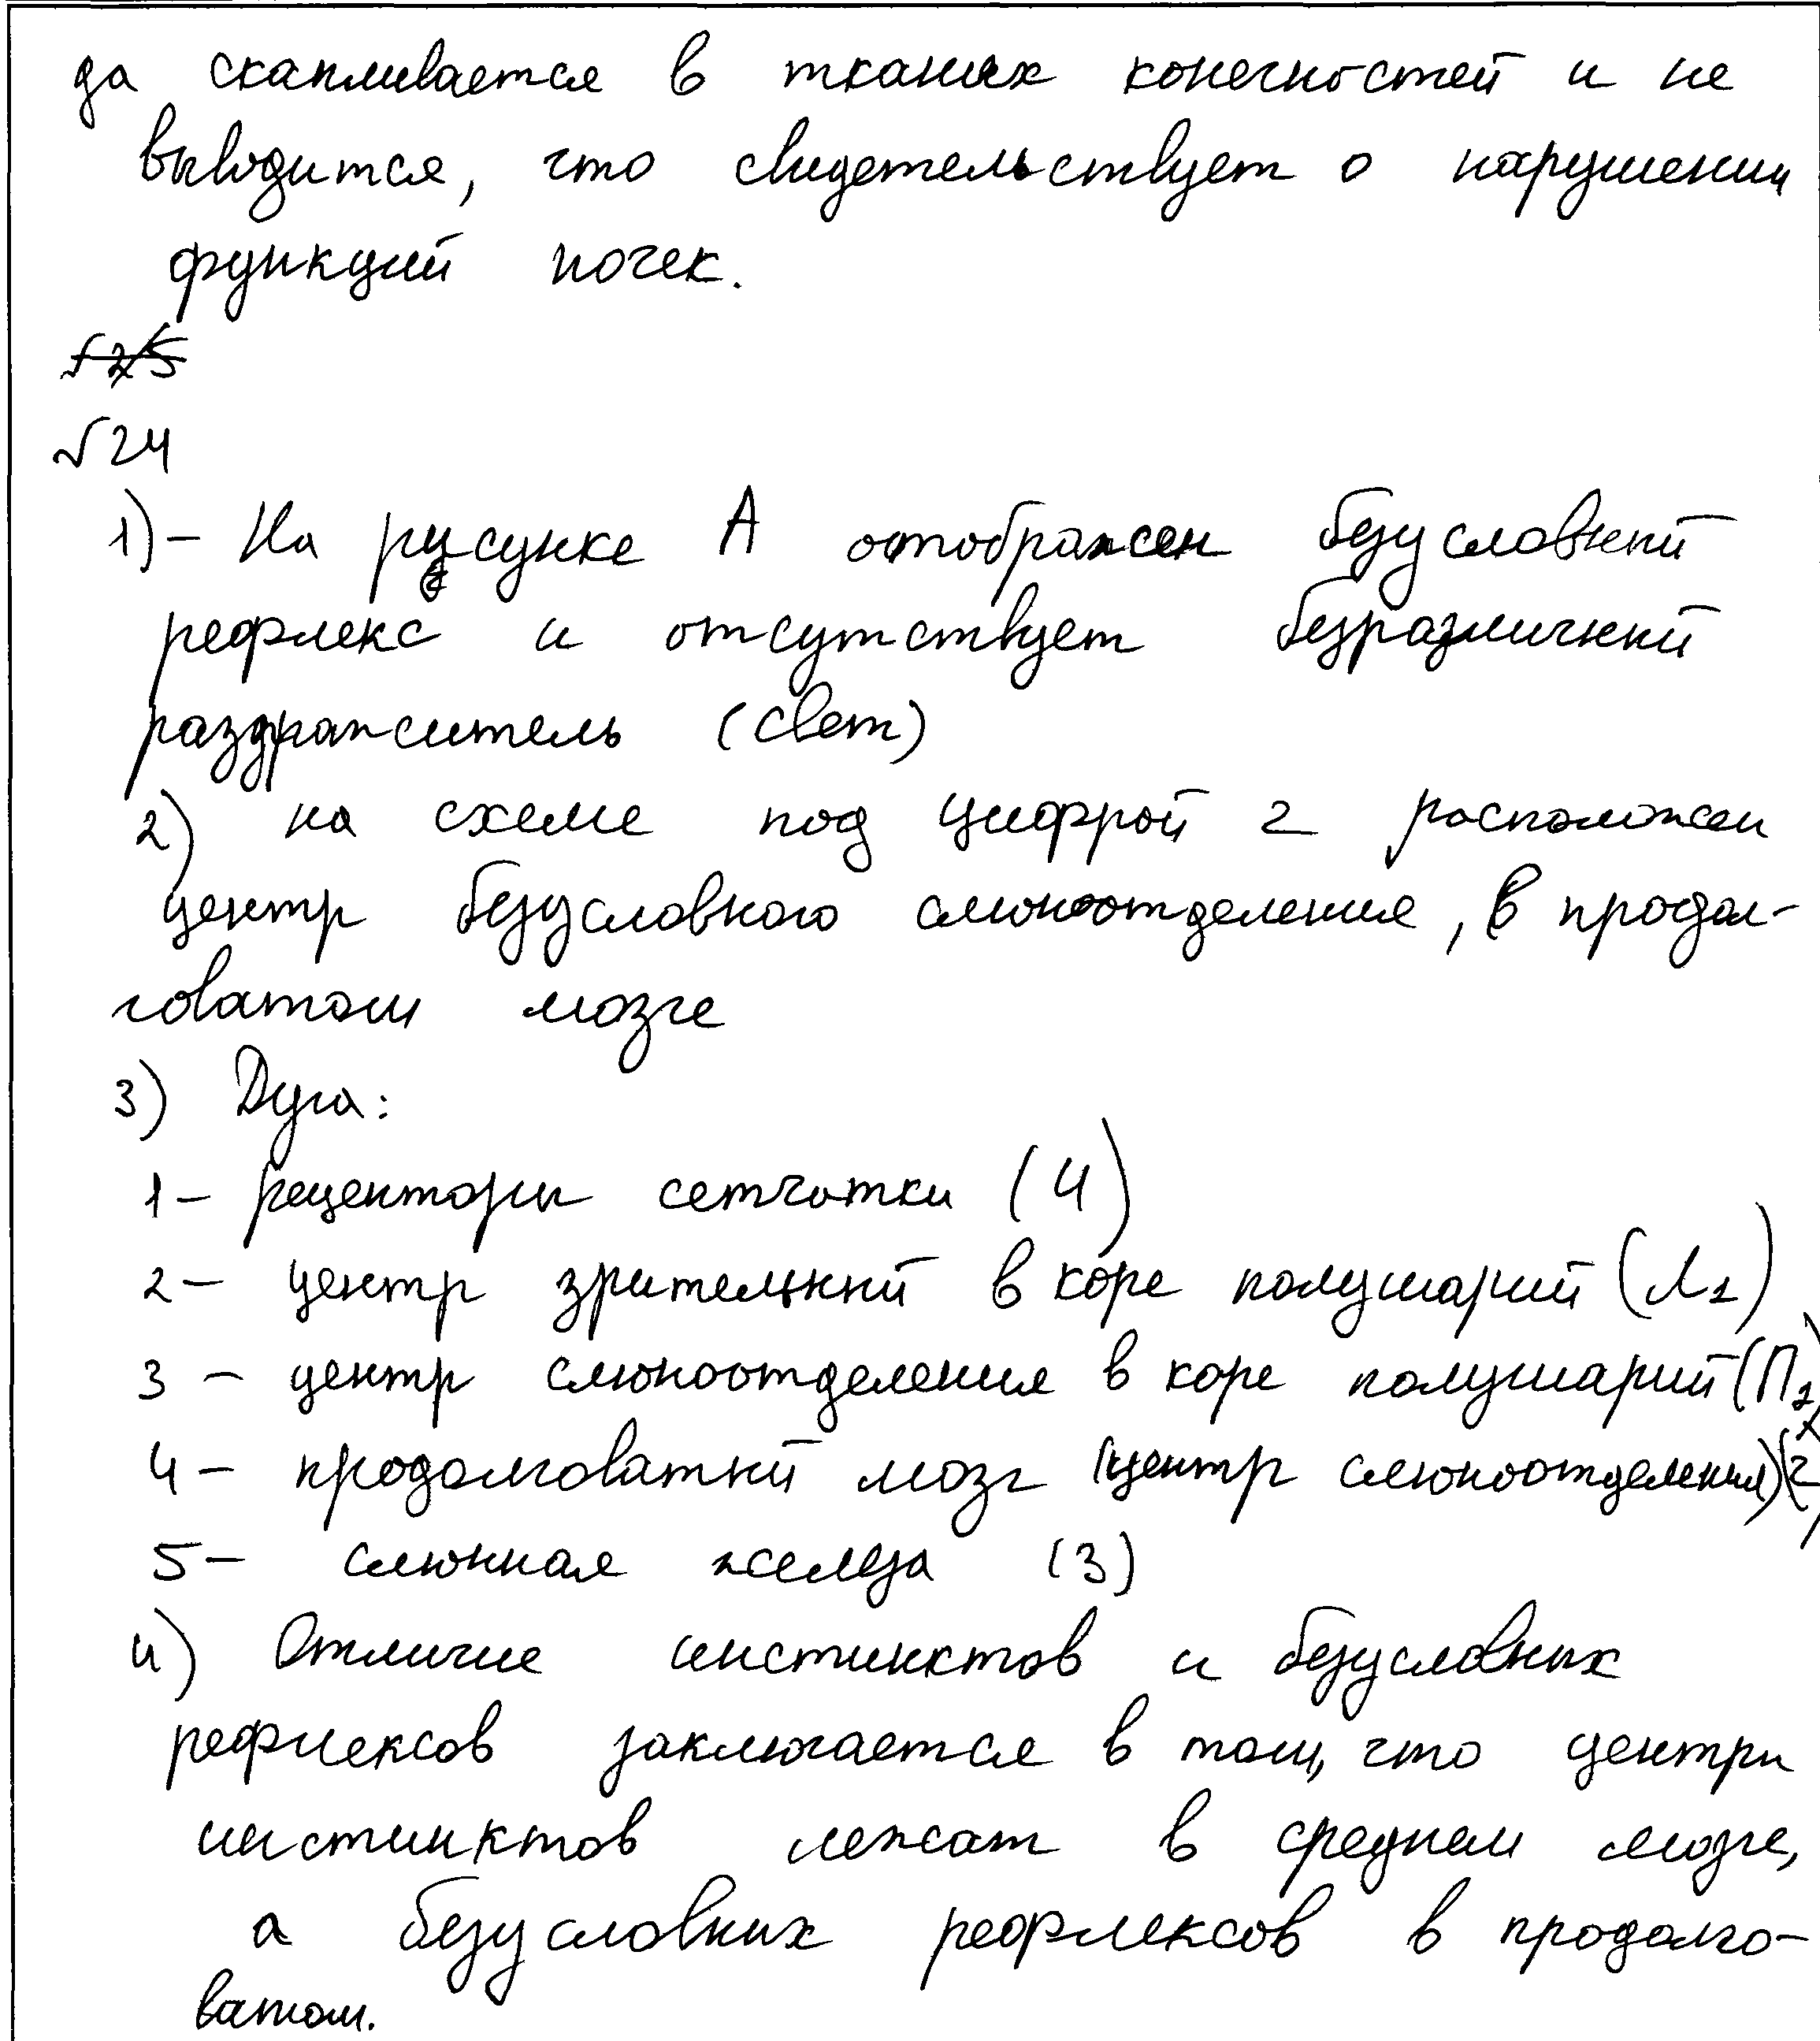 да скапливается в тканях конечностей и не
выводится, что свидетельствует о нарушении
функций почек.
№25
№24
1)- На рисунке А отображен безусловный
рефлекс и отсутствует безразличный
раздражитель (свет)
2) на схеме под цифрой 2 расположен
центр безусловного слюноотделения, в продол-
говатом мозге
3) Дуга:
1- рецепторы сетчатки (4)
2- центр зрительный в коре полушарий (Л1)
3 - центр слюноотделения в коре полушарий (П1)
4- продолговатый мозг (центр слюноотделения) (2)
5- слюнная железа (3)
4) Отличие инстинктов и безусловных
рефлексов заключается в том, что центры
инстинктов лежат в среднем мозге,
а безусловных рефлексов в продолго-
ватом.